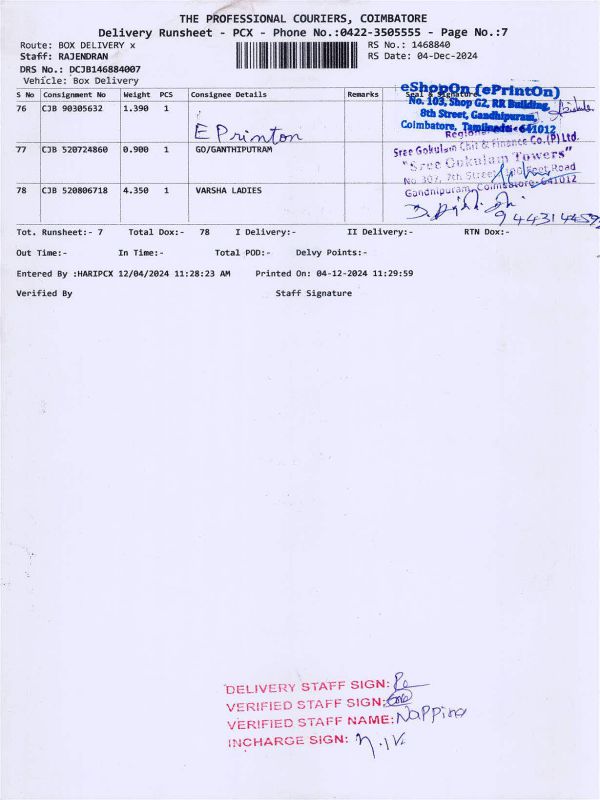 THE PROFESSIONAL COURIERS, COIMBATORE
Delivery Runsheet - PCX - Phone No.:0422-3505555 - Page No.:7
Route: BOX DELIVERY x
RS No.: 1468840
Staff: RAJENDRAN
RS Date: 04-Dec-2024
DRS No.: DCJB146884007
Vehicle: Box Delivery
S No Consignment No Weight PCS Consignee Details Remarks Seal & Signature
76 CJB 90305632 1.390 1
E Printon
eShopOn (ePrintOn)
No. 103, Shop G2, RR Building,
8th Street, Gandhipuram,
Coimbatore, Tamilnadu-641012
77 CJB 520724860 0.900 1 GO/GANTHIPUTRAM
Sree Gokulam Chit & Finance Co.(P)Ltd.
"Sree Gokulam Towers"
No 307, 7th Street, Road
Gandhipuram, Coimbatore-641012
78 CJB 520806718 4.350 1 VARSHA LADIES
Tot. Runsheet:- 7 Total Dox:- 78 I Delivery:- II Delivery:- RTN Dox:-
Out Time:- In Time:- Total POD:- Delvy Points:-
Entered By :HARIPCX 12/04/2024 11:28:23 AM Printed On: 04-12-2024 11:29:59
Verified By Staff Signature
DELIVERY STAFF SIGN:
VERIFIED STAFF SIGN:
VERIFIED STAFF NAME:
INCHARGE SIGN: